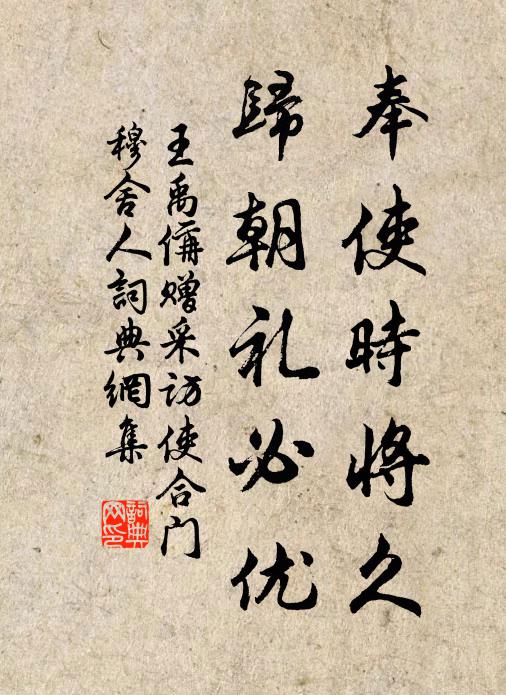 奉使時將久
歸朝礼必优
王禹偁赠采访使合门
穆舍人詞典網集
詞典
网印